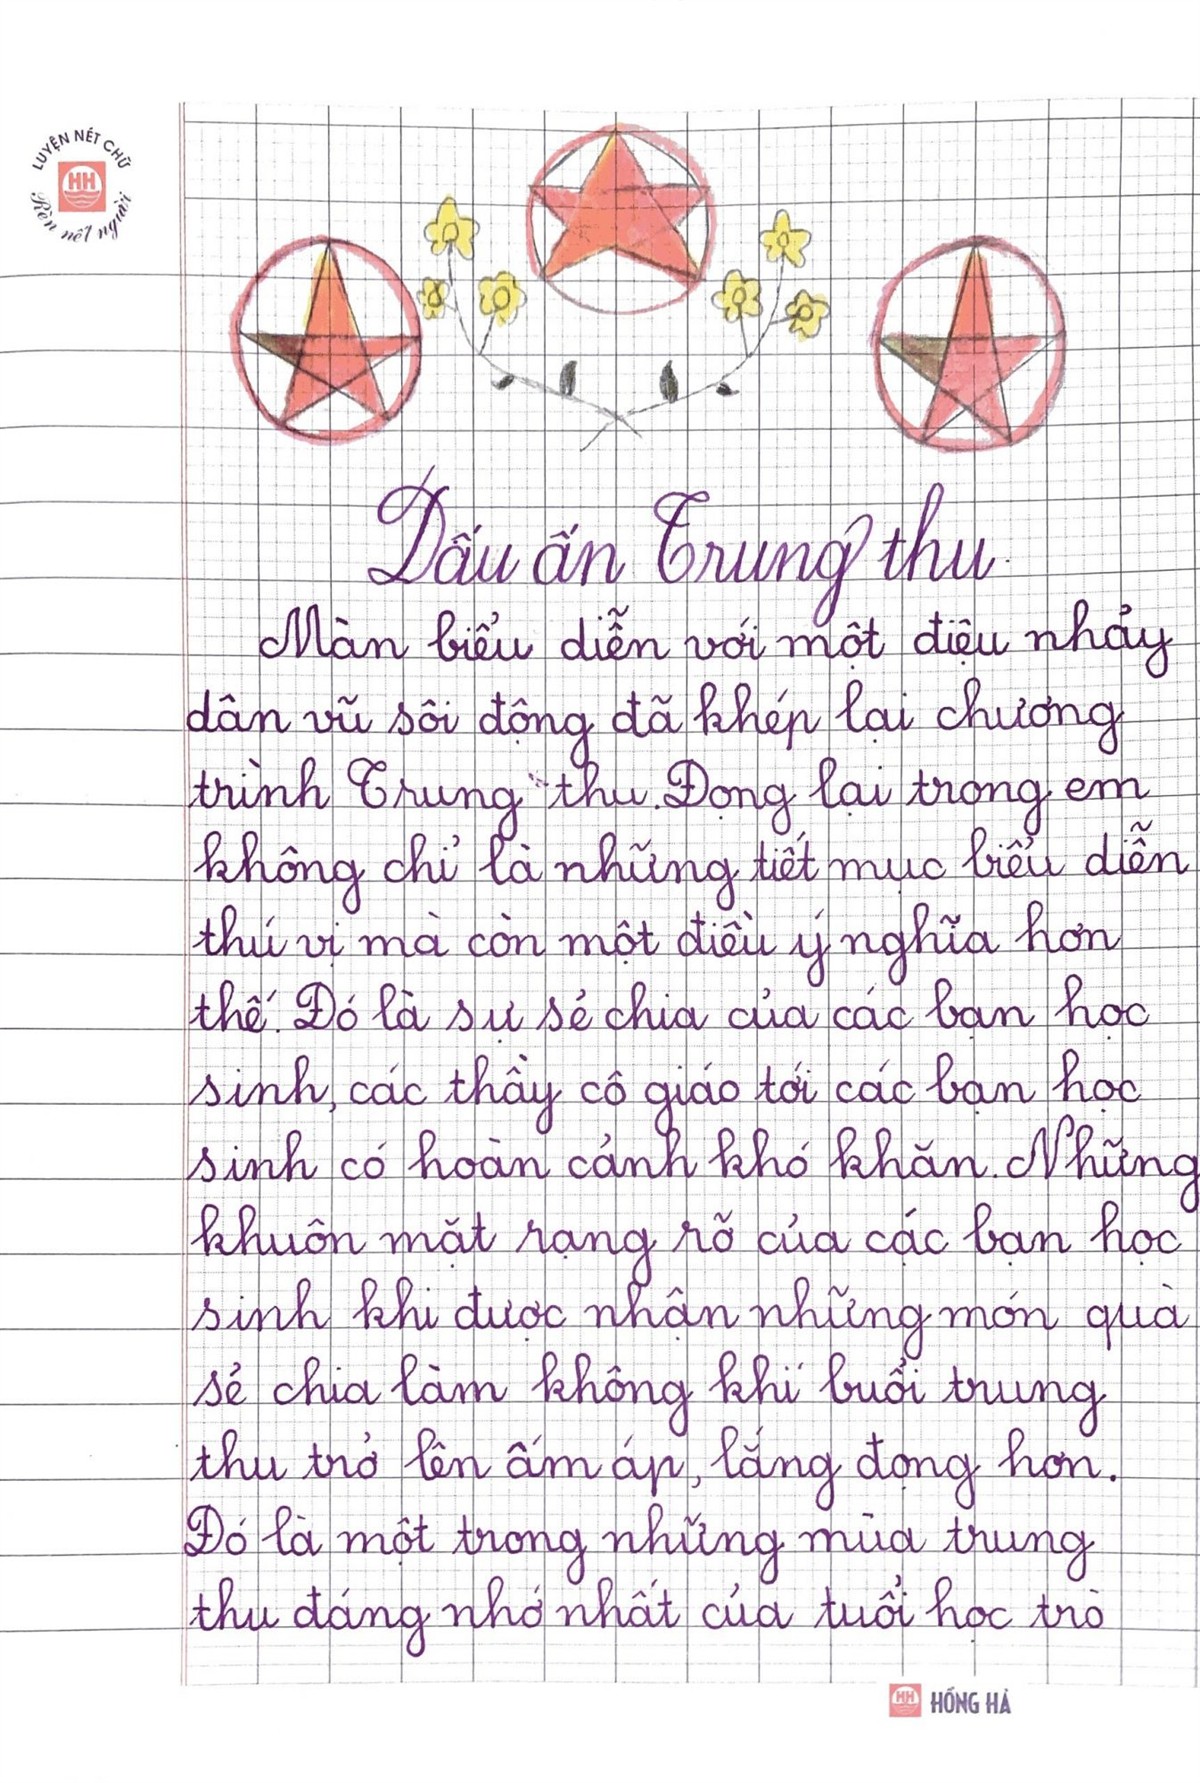 LUYỆN NÉT CHỮ
HH
Rèn nết người
Dấu ấn Trung thu.
Màn biểu diễn với một điệu nhảy
dân vũ sôi động đã khép lại chương
trình Trung thu. Đọng lại trong em
không chỉ là những tiết mục biểu diễn
thú vị mà còn một điều ý nghĩa hơn
thế. Đó là sự sẻ chia của các bạn học
sinh, các thầy cô giáo tới các bạn học
sinh có hoàn cảnh khó khăn. Những
khuôn mặt rạng rỡ của các bạn học
sinh khi được nhận những món quà
sẻ chia làm không khí buổi trung
thu trở lên ấm áp, lắng đọng hơn.
Đó là một trong những mùa trung
thu đáng nhớ nhất của tuổi học trò
HH HỒNG HÀ